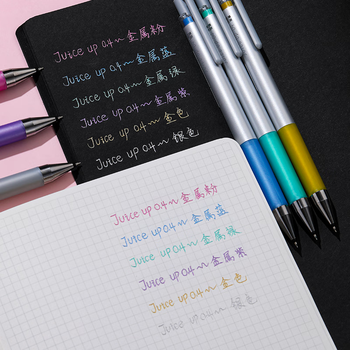 Juice up 04～金属粉
Juice up 04～金属蓝
Juice up 04～金属绿
Juice up 04～金属紫
Juice up 04～金色
Juice up 04～银色
Juice up 04～金属粉
Juice up 04～金属蓝
Juice up 04～金属绿
Juice up 04～金属紫
Juice up 04～金色
Juice up 04～银色